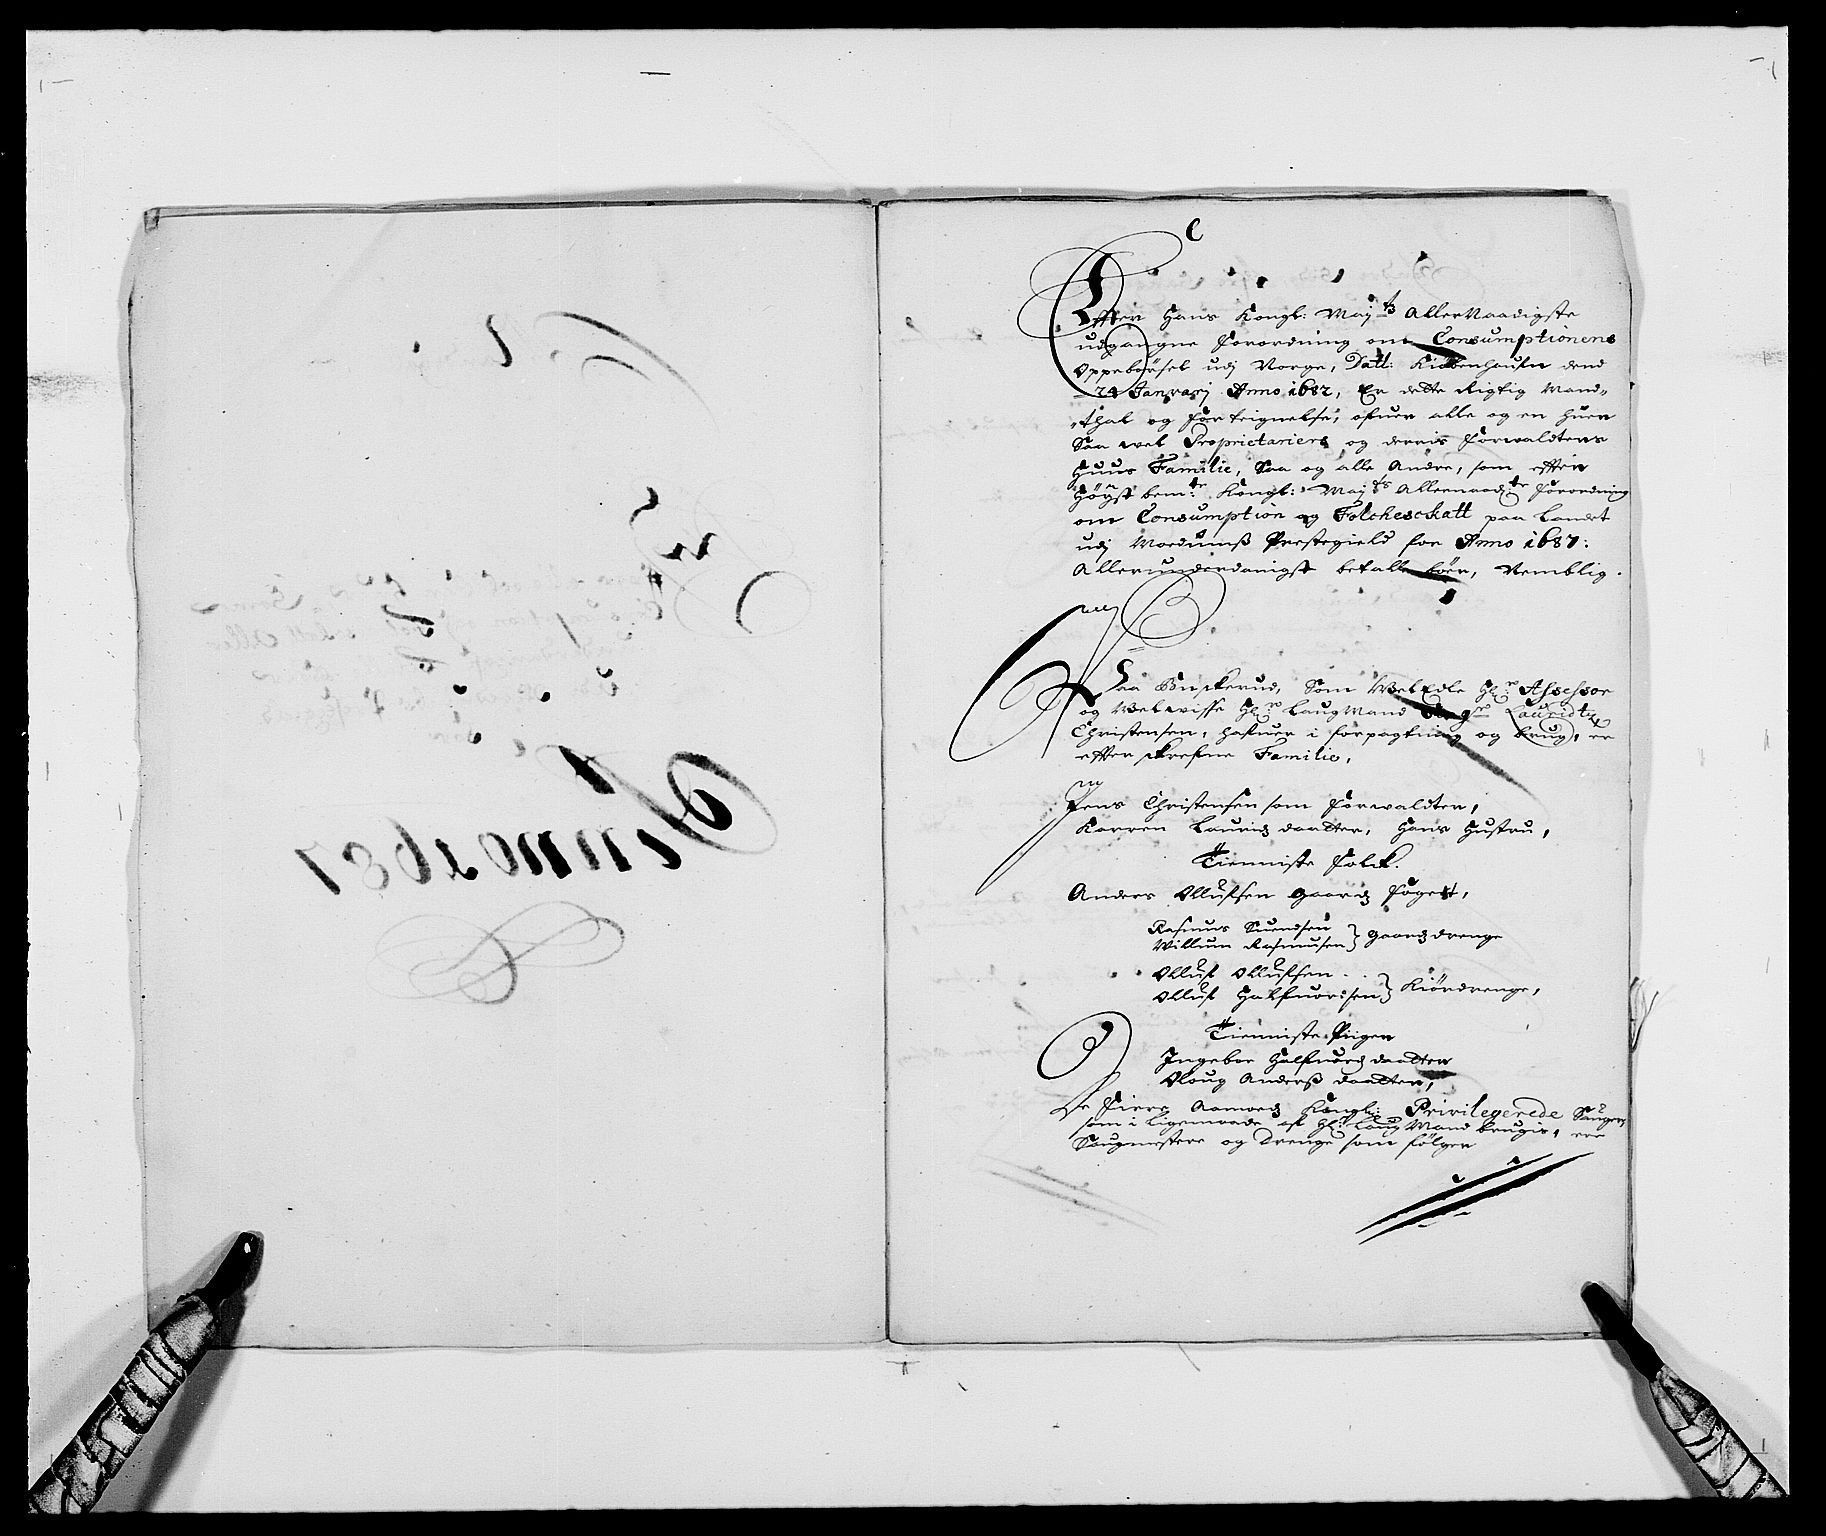 Anno 1687
C
Effter Hans Kongl: Maytz AllerNaadigste
udgangne forordning om Consumptionens
Oppebørsel udj Norge, Datt: Kiøbenhaufn dend
24 Januarj Anno 1682, Er dette Rigtig Mand„
„thal og forteignelse, ofuer alle og en huer
Saa vel Proprietariers og derris forwaldters
Huus Familie, Saa og alle Andre, som effter
Høyst bemte Kongl: Mayts Allernaadste forordning
om Consumption og Folckeschatt paa Landet
udj Modumß Prestegield for Anno 1687:
Allerunderdanigst betalle bøer, Nemblig.
Paa Buskerud, Som WelEdle Hr Assessor
og Welwisse Hr LaugMand Lauridtz
Christensen, hafuer i forpagtning og brug, er
effterskrefne Familie,
Jens Christensen som forwaldter,
Karren Lauridz daatter, Hans Hustru,
Tienniste folck.
Anders Ollufsen gaardz foget,
Rasmus Suendsen
Willum Rasmusen } gaardz drenge
Olluf Ollufsen
Olluf Halfuordsen } Kiørdrenge,
Tienniste Piiger
Ingebor Halfuordz daatter
Oloug Anderß daatter,
De fiere Aamodz Kongl: Privilegerede Sauger,
som i Ligemaade af Hr LaugMand brugis, ere
Saugmestere og Drenge som følger